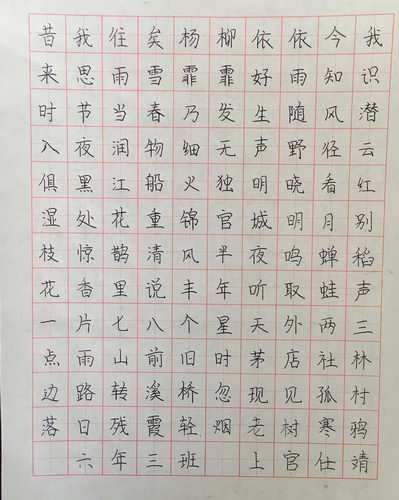 昔我住矣杨柳依依今我
来思雨雪霏霏好雨知识
时节当春乃发生随风潜
入夜润物细无声野径云
俱黑江船火独明晓看红
湿处花重锦官城明月别
枝惊鹊清风半夜鸣蝉稻
花香里说丰年听取蛙声
一片七八个星天外两三
点雨山前旧时茅店社林
边路转溪桥忽现见孤村
落日残霞轻烟老树寒鸦
六年三班 上官仕靖